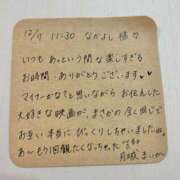 12/9 11:30 なかよし様♡
いつもあっという間な楽しすぎる
お時間ありがとうございます♥
マイナーかな？と思いながらお伝えした
大好きな映画が、まさかの全く同じで
お互い本当にびっくりしちゃいましたね
あーもう1回観たくなっちゃった
月城まいか